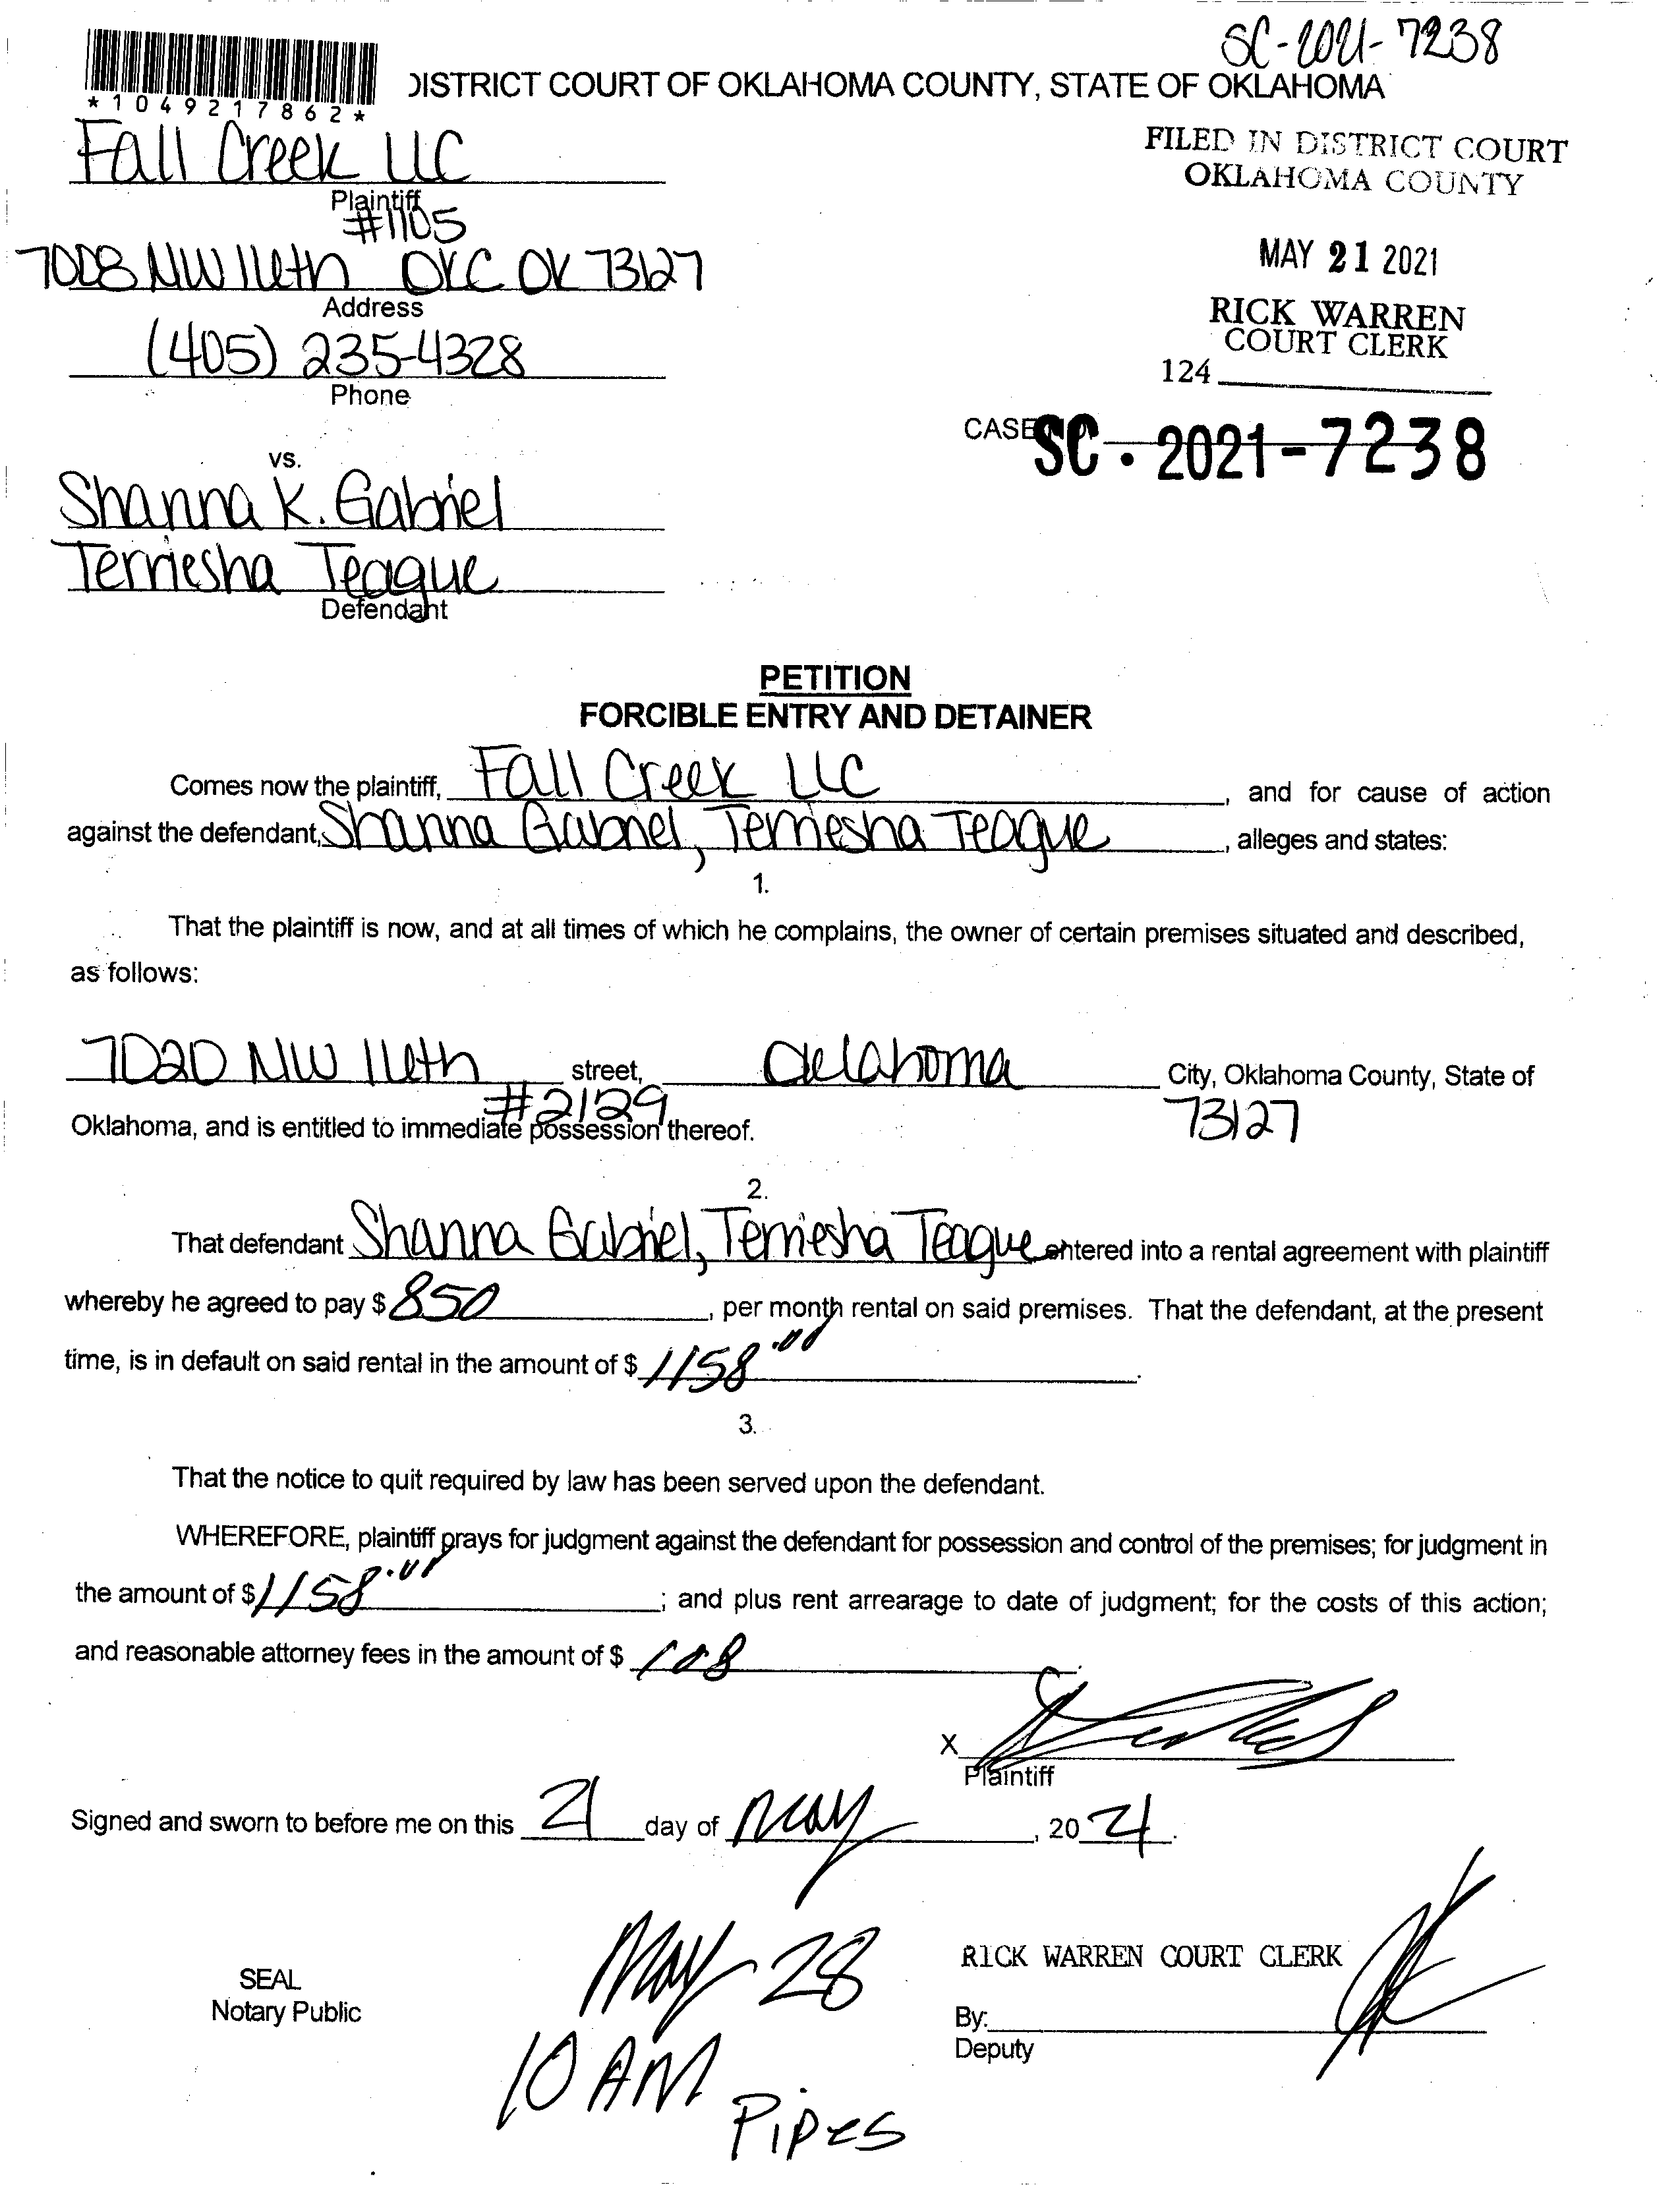 SC-2021-7238
*1049217862*
DISTRICT COURT OF OKLAHOMA COUNTY, STATE OF OKLAHOMA
Fall Creek LLC
Plaintiff
#1105
7008 NW 16th OKC OK 73127
Address
(405) 235-4328
Phone
FILED IN DISTRICT COURT
OKLAHOMA COUNTY
MAY 21 2021
RICK WARREN
COURT CLERK
124
CASE NO. SC - 2021-7238
vs.
Shanna K. Gabriel
Terriesha Teague
Defendant
PETITION
FORCIBLE ENTRY AND DETAINER
Comes now the plaintiff, Fall Creek LLC, and for cause of action
against the defendant, Shanna Gabriel, Terriesha Teague, alleges and states:
1.
That the plaintiff is now, and at all times of which he complains, the owner of certain premises situated and described,
as follows:
7020 NW 16th street, Oklahoma City, Oklahoma County, State of
#2129 73127
Oklahoma, and is entitled to immediate possession thereof.
2.
That defendant Shanna Gabriel, Terriesha Teague entered into a rental agreement with plaintiff
whereby he agreed to pay $ 850, per month rental on said premises. That the defendant, at the present
time, is in default on said rental in the amount of $ 1158.00.
3.
That the notice to quit required by law has been served upon the defendant.
WHEREFORE, plaintiff prays for judgment against the defendant for possession and control of the premises; for judgment in
the amount of $ 1158.00; and plus rent arrearage to date of judgment; for the costs of this action;
and reasonable attorney fees in the amount of $ 108.
X
Plaintiff
Signed and sworn to before me on this 21 day of May, 2021.
SEAL
Notary Public
May 28
10 AM
Pipes
RICK WARREN COURT CLERK
By:
Deputy